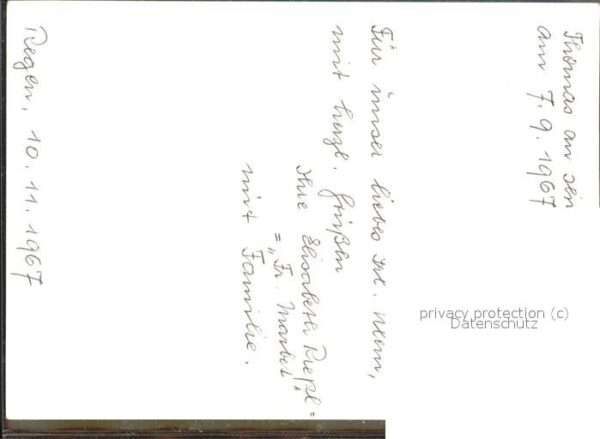 Thomas an sein
am 7.9.1967
Für unser liebes Frl. Neun,
mit herzl. Grüßen
Ihre Elisabeth Riepl =
= „Fr. Marbet“
mit Familie.
Regen, 10.11.1967
privacy protection (c)
Datenschutz